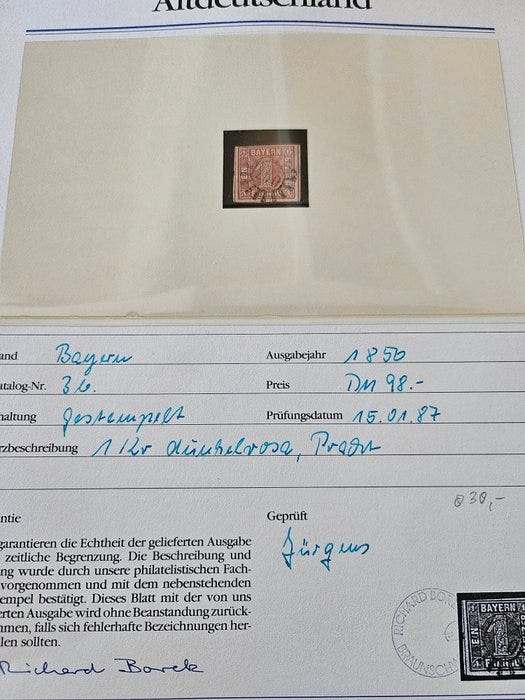 Altdeutschland
BAYERN
1
and Bayern Ausgabejahr 1850
atalog-Nr. 3b. Preis DM 98.-
haltung gestempelt Prüfungsdatum 15.01.87
rzbeschreibung 1 Kr dunkelrosa, Pracht
30,-
ntie Geprüft
garantieren die Echtheit der gelieferten Ausgabe Jürgens
zeitliche Begrenzung. Die Beschreibung und
ng wurde durch unsere philatelistischen Fach-
vorgenommen und mit dem nebenstehenden
empel bestätigt. Dieses Blatt mit der von uns
erten Ausgabe wird ohne Beanstandung zurück-
mmen, falls sich fehlerhafte Bezeichnungen her-
len sollten.
Richard Borek
RICHARD BO
BRAUNSCH
BAYERN
1